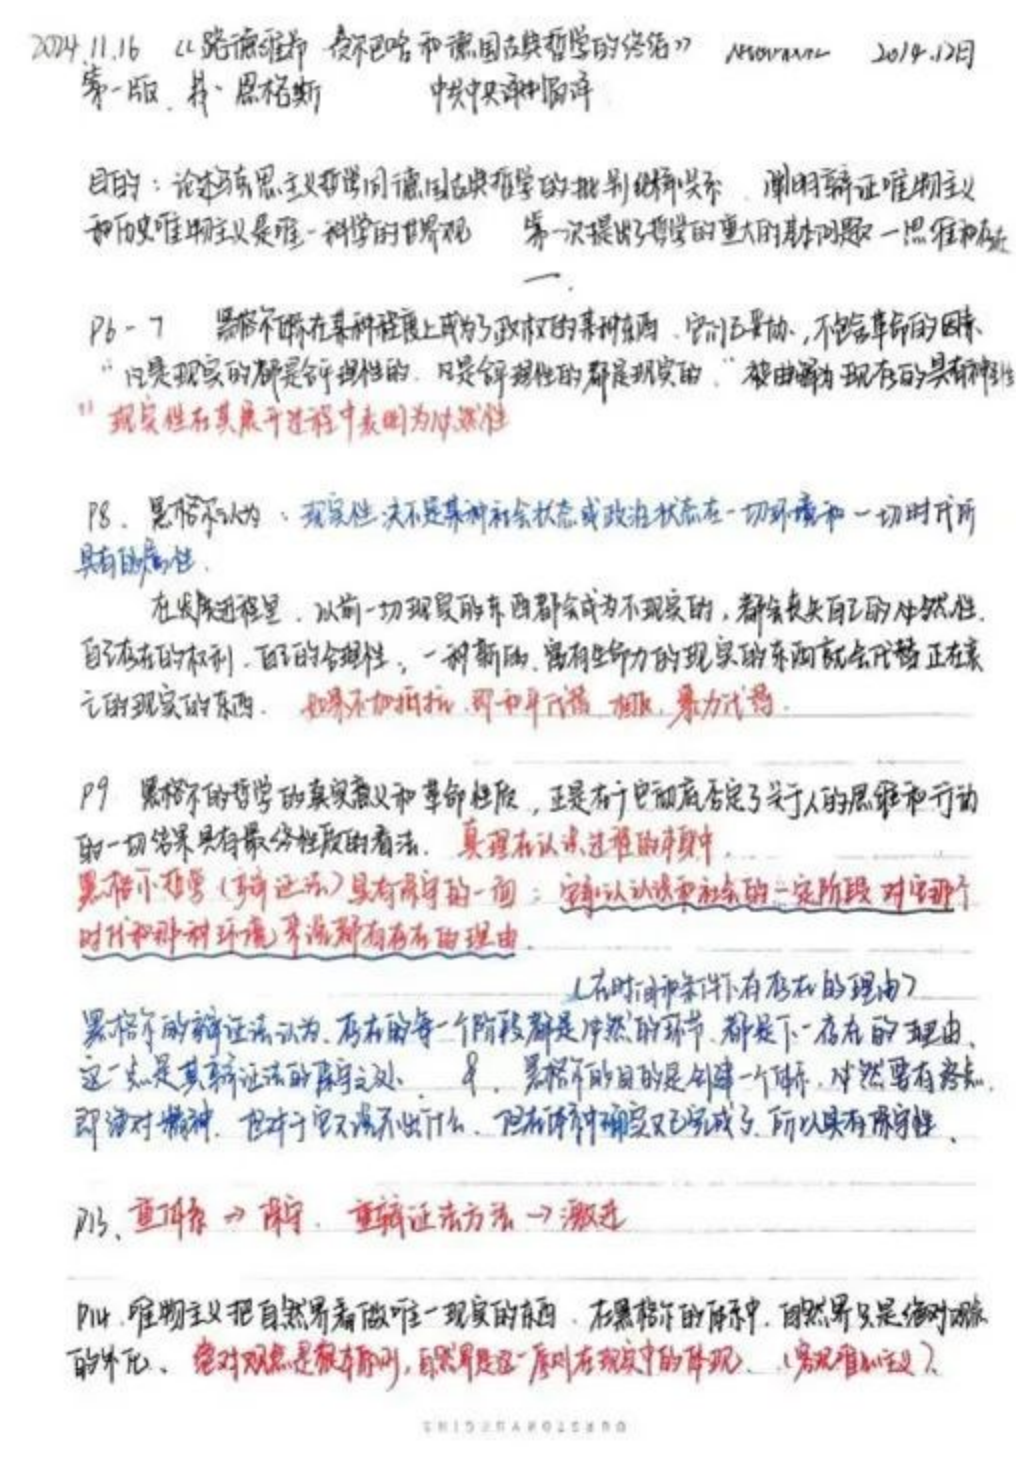 2024.11.16 《路德维希 费尔巴哈和德国古典哲学的终结》 2014.12月
第一版. 恩格斯 中共中央编译局译
目的:论述马克思主义哲学同德国古典哲学的批判继承关系、阐明辩证唯物主义
和历史唯物主义是唯一科学的世界观 第一次提出了哲学的重大的基本问题—思维和存在
一.
P6-7 黑格尔哲学在某种程度上成为了政权的某种东西、它们已妥协、不包含革命的因素、
"凡是现实的都是合乎理性的、凡是合乎理性的都是现实的." 被曲解为现存的具有神圣性
"现实性在其展开过程中表明为必然性
P8、黑格尔认为:现实性决不是某种社会状态或政治状态在一切环境和一切时代所
具有的属性.
在发展进程里、以前一切现实的东西都会成为不现实的,都会丧失自己的必然性、
自己存在的权利、自己的合理性;一种新的、富有生命力的现实的东西就会代替正在衰
亡的现实的东西. 如果不加抵抗、即和平代替 相反,暴力代替.
P9 黑格尔的哲学的真实意义和革命性质,正是在于它彻底否定了关于人的思维和行动
的一切结果具有最终性质的看法. 真理在认识过程的本身中.
黑格尔哲学(辩证法)具有保守的一面:它承认认识和社会的一定阶段对它那个
时代和那种环境来说都有存在的理由.
(在时间和条件下有存在的理由)
黑格尔的辩证法认为、存在的每一个阶段都是必然的环节、都是下一存在的理由、
这一点是其辩证法的保守之处. &. 黑格尔的目的是创建一个体系、必然要有终点、
即绝对精神、他对于它又说不出什么、但在体系中确实又已完成了、所以具有保守性.
P13、重体系→保守. 重辩证法方法→激进
P14、唯物主义把自然界看做唯一现实的东西、在黑格尔的体系中、自然界只是绝对观念
的外化、绝对观念是根本原则,自然界是这一原则在现实中的体现、(客观唯心主义).